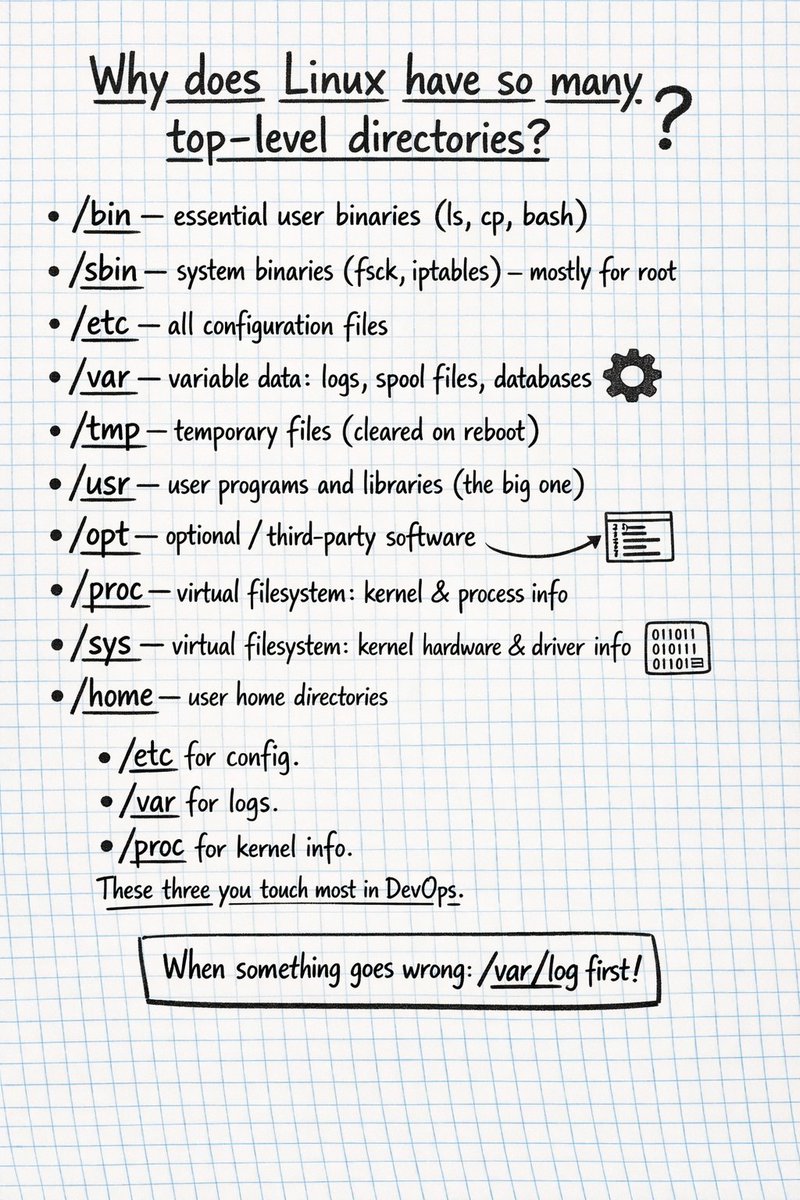 Why does Linux have so many. ?
top-level directories?
• /bin — essential user binaries (ls, cp, bash)
• /sbin — system binaries (fsck, iptables) – mostly for root
• /etc — all configuration files
• /var — variable data: logs, spool files, databases
• /tmp — temporary files (cleared on reboot)
• /usr — user programs and libraries (the big one)
• /opt — optional / third-party software
• /proc — virtual filesystem: kernel & process info
• /sys — virtual filesystem: kernel hardware & driver info
011011
010111
01101
• /home — user home directories
• /etc for config.
• /var for logs.
• /proc for kernel info.
These three you touch most in DevOps.
When something goes wrong: /var/log first!